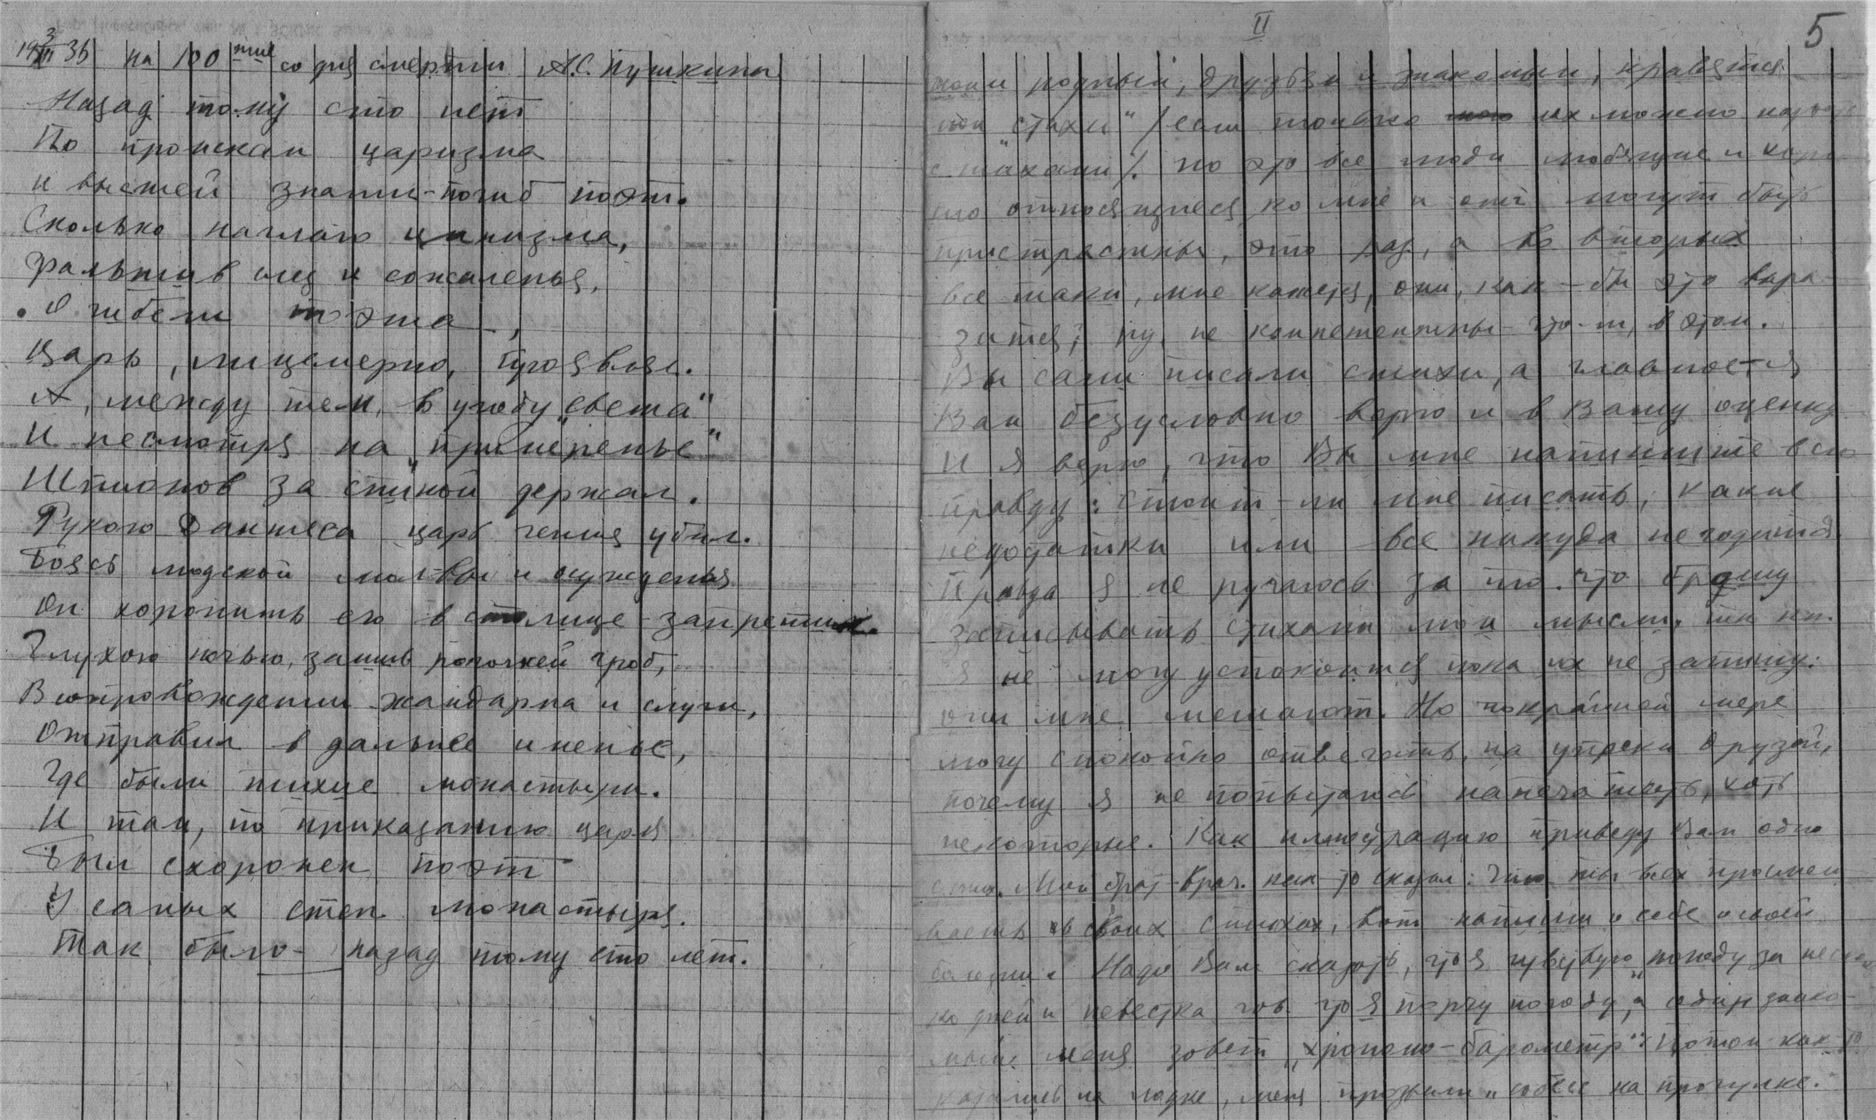 19 3/III 36 на 100тие со дня смерти А.С. Пушкина
Назад тому сто лет
По проискам царизма
и высшей знати - погиб поэт.
Сколько наглого цинизма,
Фальшив слез и сожаленья,
О гибели поэта,
Царь, лицемерно, проявлял.
А, между тем, в угоду „света"
И несмотря на „примиренье"
Шпионов за спиной держал.
Рукою Дантеса царь гения убил.
Боясь людской молвы и осужденья
Он хоронить его в столице - запретил.
Глухою ночью, зашив рогожей гроб,
В сопровождении жандарма и слуги,
Отправил в дальнее именье,
Где были тихие монастыри.
И там, по приказанию царя
Был схоронен поэт
У самых стен монастыря.
Так было - назад тому сто лет.
II
5
моим родным, друзьям и знакомым, нравятся
мои „стихи" /если только их можно назвать
стихами/. но это все люди любящие и хоро
шо относящиеся ко мне и они могут быть
пристрастны, это раз, а во вторых
все таки, мне кажется, они, как-бы это выра
зиться, ну, не компетентны что-ли, в этом.
Вы сами писали стихи, а главное я
Вам безусловно верю и в Вашу оценку
И я верю, что Вы мне напишите всю
правду: стоит-ли мне писать, какие
недостатки или все никуда не годится
Правда я не ручаюсь за то что брошу
записывать стихами мои мысли, т.к.
я не могу успокоится пока их не запишу:
они мне мешают. Но покрайней мере
могу спокойно отвечать, на упреки друзей,
почему я не попытаюсь напечатать, хоть
некоторые. Как иллюстрацию приведу Вам одно
стих. Мой брат-врач. как-то сказал: что ты всех просмеи
ваешь в своих стихах, вот напиши о себе и своей
болезни. Надо Вам сказать, что я чувствую „погоду за несколь
ко дней и невестка гов. что я порчу погоду, а один знако
мый меня зовет „хрононо-барометр". Потом как-то
катались на лодке, меня прозвали „ на прогулке."